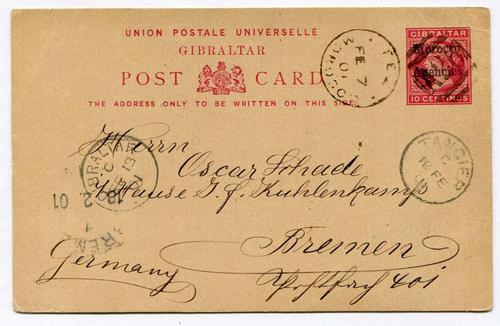 UNION POSTALE UNIVERSELLE
GIBRALTAR
POST CARD
THE ADDRESS ONLY TO BE WRITTEN ON THIS SIDE.
GIBRALTAR
Morocco
Agencies
10 CENTIMOS
FEZ
FE 7
01
MOROCCO
Herrn
Oscar Schade
Hause G. F. Kuhlenkamp
Bremen
Germany
Postfach 401
GIBRALTAR
13
18.2.01
BREMEN
TANGIER
C
12 FE